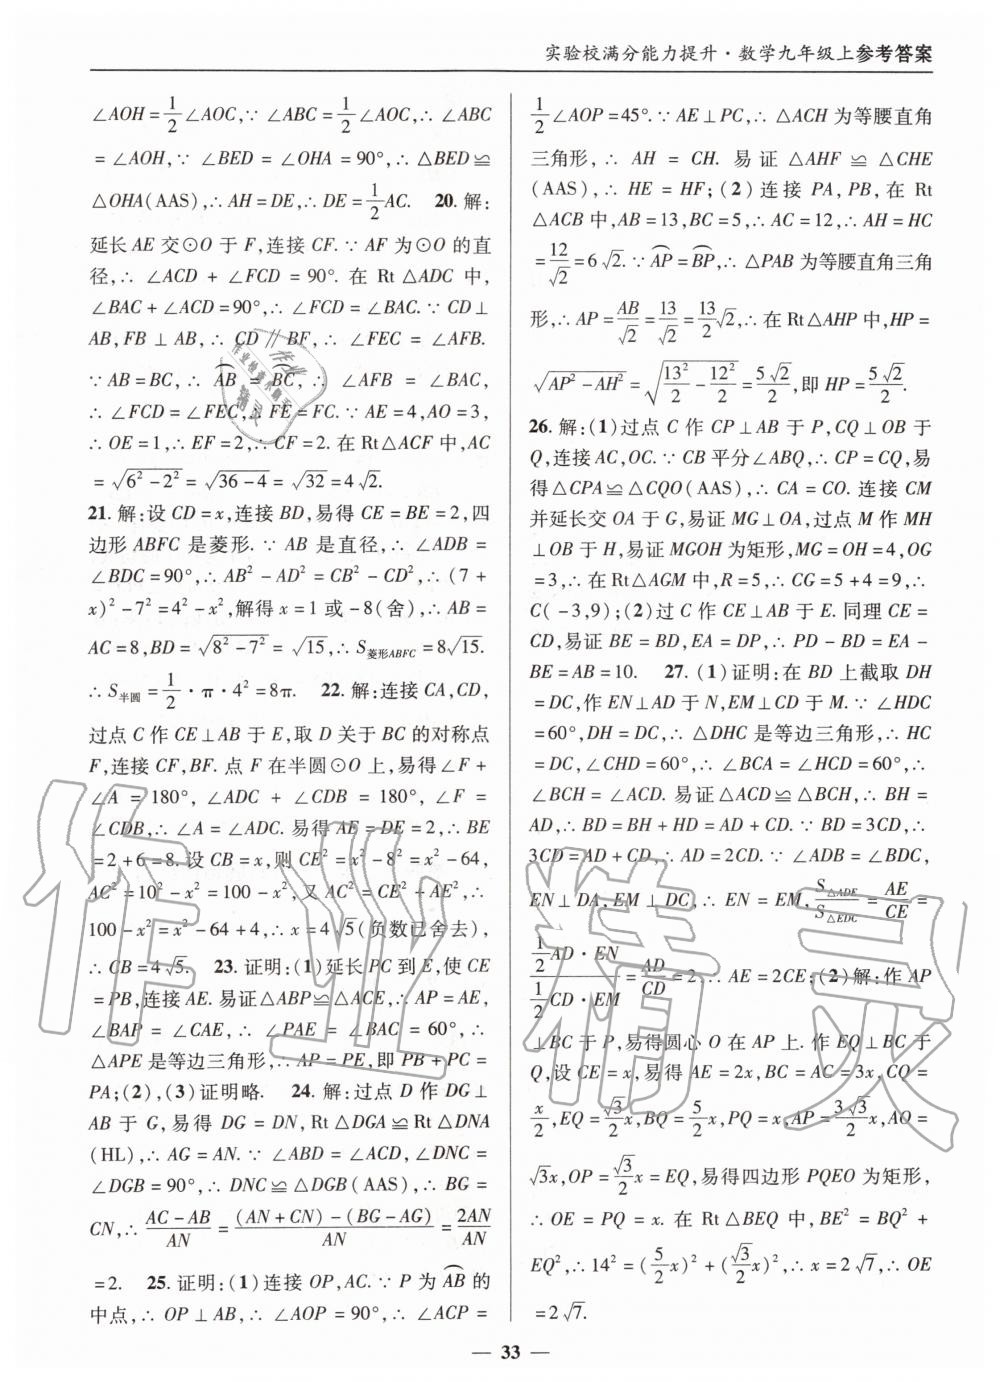 实验校满分能力提升·数学九年级上参考答案
∠AOH=1/2∠AOC,∵ ∠ABC=1/2∠AOC,∴ ∠ABC
=∠AOH,∵ ∠BED=∠OHA=90°,∴ △BED≌
△OHA(AAS),∴ AH=DE,∴ DE=1/2AC. 20.解:
延长AE交⊙O于F,连接CF.∵ AF为⊙O的直
径,∴ ∠ACD+∠FCD=90°.在Rt△ADC中,
∠BAC+∠ACD=90°,∴ ∠FCD=∠BAC.∵ CD⊥
AB,FB⊥AB,∴ CD∥BF,∴ ∠FEC=∠AFB.
∵ AB=BC,∴ ⌒AB=⌒BC,∴ ∠AFB=∠BAC,
∴ ∠FCD=∠FEC,∴ FE=FC.∵ AE=4,AO=3,
∴ OE=1,∴ EF=2,∴ CF=2.在Rt△ACF中,AC
=√(6²-2²)=√(36-4)=√32=4√2.
21.解:设CD=x,连接BD,易得CE=BE=2,四
边形ABFC是菱形.∵ AB是直径,∴ ∠ADB=
∠BDC=90°,∴ AB²-AD²=CB²-CD²,∴ (7+
x)²-7²=4²-x²,解得x=1或-8(舍),∴ AB=
AC=8,BD=√(8²-7²)=√15,∴ S菱形ABFC=8√15.
∴ S半圆=1/2·π·4²=8π. 22.解:连接CA,CD,
过点C作CE⊥AB于E,取D关于BC的对称点
F,连接CF,BF.点F在半圆⊙O上,易得∠F+
∠A=180°,∠ADC+∠CDB=180°,∠F=
∠CDB,∴ ∠A=∠ADC.易得AE=DE=2,∴ BE
=2+6=8.设CB=x,则CE²=x²-8²=x²-64,
AC²=10²-x²=100-x²,又AC²=CE²+AE²,∴
100-x²=x²-64+4,∴ x=4√5(负数已舍去),
∴ CB=4√5. 23.证明:(1)延长PC到E,使CE
=PB,连接AE.易证△ABP≌△ACE,∴ AP=AE,
∠BAP=∠CAE,∴ ∠PAE=∠BAC=60°,∴
△APE是等边三角形,∴ AP=PE,即PB+PC=
PA;(2),(3)证明略. 24.解:过点D作DG⊥
AB于G,易得DG=DN,Rt△DGA≌Rt△DNA
(HL),∴ AG=AN.∵ ∠ABD=∠ACD,∠DNC=
∠DGB=90°,∴ △DNC≌△DGB(AAS),∴ BG=
CN,∴ (AC-AB)/AN=((AN+CN)-(BG-AG))/AN=2AN/AN
=2. 25.证明:(1)连接OP,AC.∵ P为⌒AB的
中点,∴ OP⊥AB,∴ ∠AOP=90°,∴ ∠ACP=
1/2∠AOP=45°.∵ AE⊥PC,∴ △ACH为等腰直角
三角形,∴ AH=CH.易证△AHF≌△CHE
(AAS),∴ HE=HF;(2)连接PA,PB,在Rt
△ACB中,AB=13,BC=5,∴ AC=12,∴ AH=HC
=12/√2=6√2.∵ ⌒AP=⌒BP,∴ △PAB为等腰直角三角
形,∴ AP=AB/√2=13/√2=13/2√2,∴ 在Rt△AHP中,HP=
√(AP²-AH²)=√(13²/2-12²/2)=5√2/2,即HP=5√2/2.
26.解:(1)过点C作CP⊥AB于P,CQ⊥OB于
Q,连接AC,OC.∵ CB平分∠ABQ,∴ CP=CQ,易
得△CPA≌△CQO(AAS),∴ CA=CO.连接CM
并延长交OA于G,易证MG⊥OA,过点M作MH
⊥OB于H,易证MGOH为矩形,MG=OH=4,OG
=3,∴ 在Rt△AGM中,R=5,∴ CG=5+4=9,∴
C(-3,9);(2)过C作CE⊥AB于E.同理CE=
CD,易证BE=BD,EA=DP,∴ PD-BD=EA-
BE=AB=10. 27.(1)证明:在BD上截取DH
=DC,作EN⊥AD于N,EM⊥CD于M.∵ ∠HDC
=60°,DH=DC,∴ △DHC是等边三角形,∴ HC
=DC,∠CHD=60°,∴ ∠BCA=∠HCD=60°,∴
∠BCH=∠ACD.易证△ACD≌△BCH,∴ BH=
AD,∴ BD=BH+HD=AD+CD.∵ BD=3CD,∴
3CD=AD+CD,∴ AD=2CD.∵ ∠ADB=∠BDC,
EN⊥DA,EM⊥DC,∴ EN=EM,S△ADE/S△EDC=AE/CE=
(1/2AD·EN)/(1/2CD·EM)=AD/CD=2,∴ AE=2CE;(2)解:作AP
⊥BC于P,易得圆心O在AP上.作EQ⊥BC于
Q,设CE=x,易得AE=2x,BC=AC=3x,CQ=
x/2,EQ=√3/2x,BQ=5/2x,PQ=x,AP=3√3/2x,AO=
√3x,OP=√3/2x=EQ,易得四边形PQEO为矩形,
∴ OE=PQ=x.在Rt△BEQ中,BE²=BQ²+
EQ²,∴ 14²=(5/2x)²+(√3/2x)²,∴ x=2√7,∴ OE
=2√7.
— 33 —
作业精灵